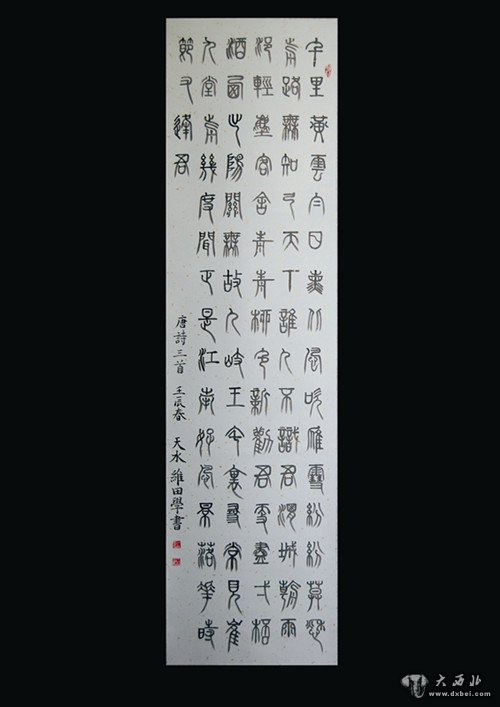 千里黃雲白日曛北風吹雁雪紛紛莫愁
前路無知己天下誰人不識君渭城朝雨
浥輕塵客舍青青柳色新勸君更盡弌桮
酒西出陽關無故人岐王宅裏尋常見崔
九堂前幾度聞正是江南好風景落花時
節又逢君
唐詩三首 壬辰春 天水維田學書
大西北
www.dxbei.com